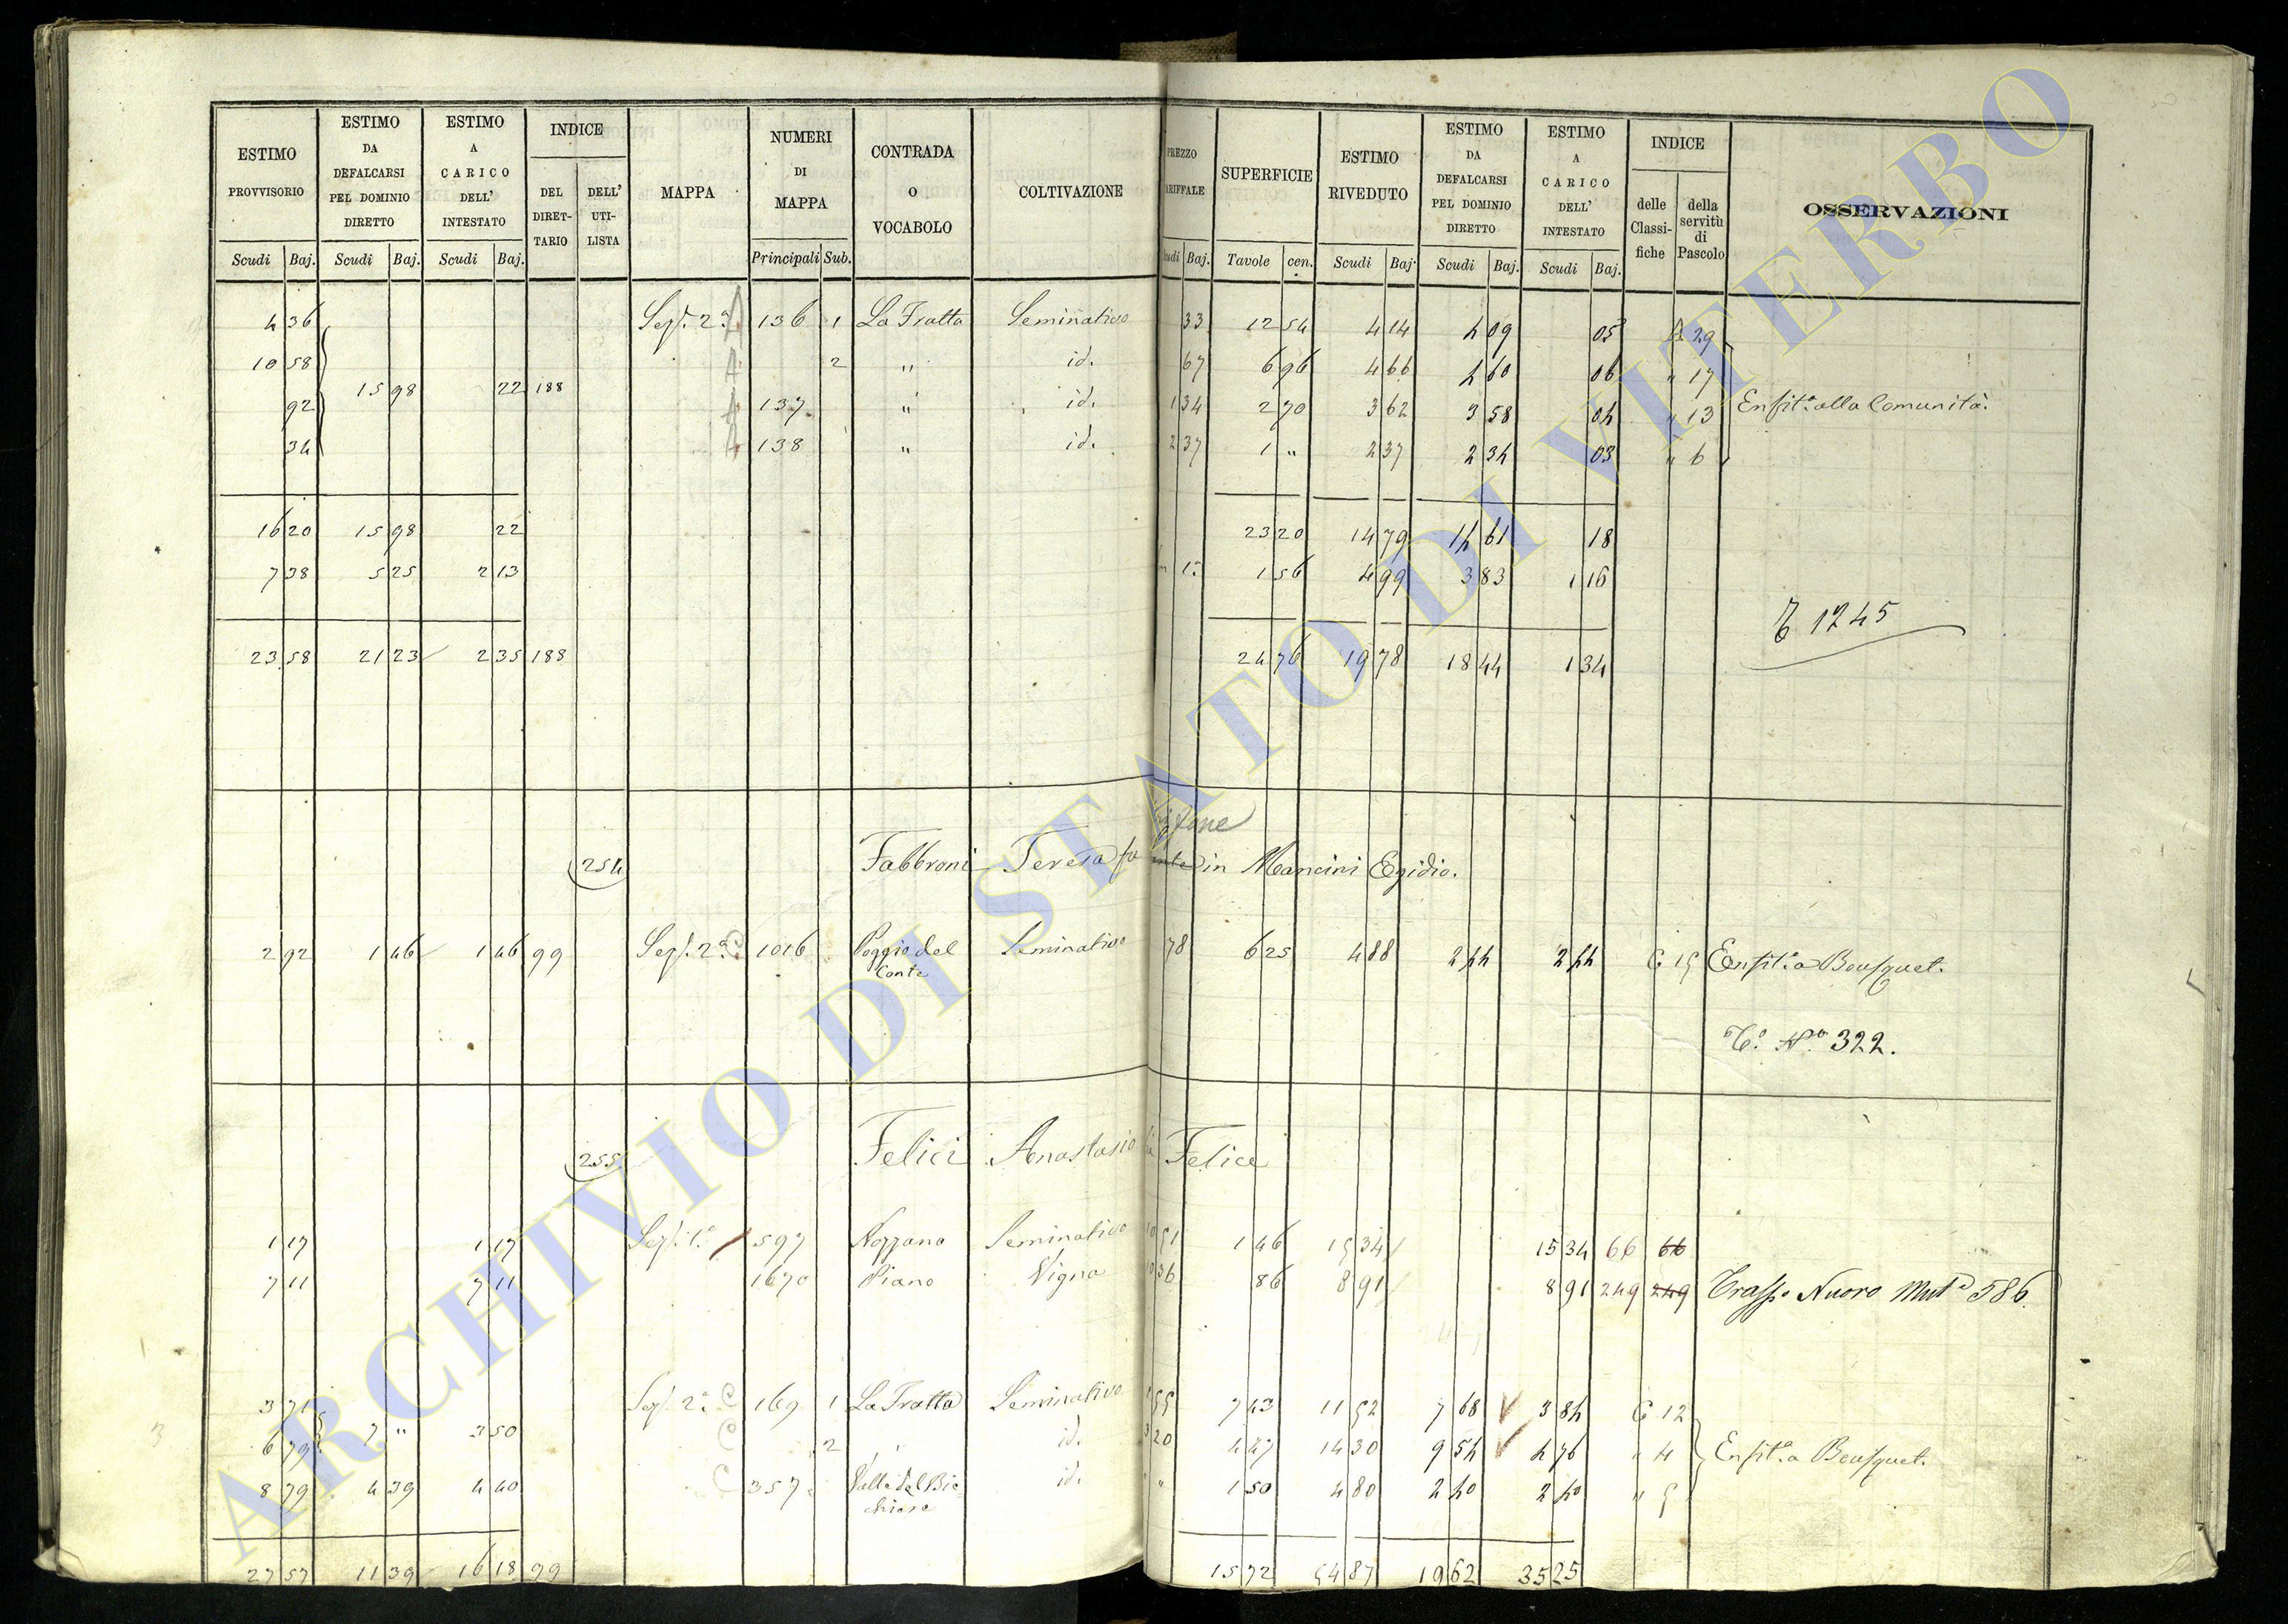 ESTIMO PROVVISORIO | ESTIMO DA DEFALCARSI PEL DOMINIO DIRETTO | ESTIMO A CARICO DELL' INTESTATO | INDICE | MAPPA | NUMERI DI MAPPA | CONTRADA O VOCABOLO | COLTIVAZIONE | PREZZO TARIFFALE | SUPERFICIE | ESTIMO RIVEDUTO | ESTIMO DA DEFALCARSI PEL DOMINIO DIRETTO | ESTIMO A CARICO DELL' INTESTATO | INDICE | OSSERVAZIONI
DEL DIRETTARIO | DELL' UTILISTA | delle Classifiche | della servitù di Pascolo
Scudi Baj. | Scudi Baj. | Scudi Baj. | Principali Sub. | Scudi Baj. | Tavole cen. | Scudi Baj. | Scudi Baj. | Scudi Baj.
4 36 | Sez. 2ª A 136 1 La Fratta Seminativo 33 12 54 4 14 4 09 05 A 29
10 58 | A 2 " id. 67 6 96 4 66 4 60 06 " 17
15 98 22 188
92 | A 137 " id. 1 34 2 70 3 62 3 58 04 " 13 Enfit.a alla Comunità.
34 | A 138 " id. 2 37 1 " 2 37 2 34 03 " 6
16 20 15 98 22 | 23 20 14 79 14 61 18
7 38 5 25 2 13 | 1 56 4 99 3 83 1 16
T 1245
23 58 21 23 2 35 188 | 24 76 19 78 18 44 1 34
254 Fabbroni Teresa fu in Mancini Egidio.
2 92 1 46 1 46 99 Sez. 2ª C 1016 Poggio del Conte Seminativo 78 6 25 4 88 2 44 2 44 C 15 Enfit.a a Bousquet.
T.º Nº 322.
255 Felici Anastasio fu Felice
1 17 1 17 Sez. 1ª 597 Nozzano Seminativo 10 51 1 46 15 34 15 34 66 66
7 11 7 11 1670 Piano Vigna 10 36 86 8 91 8 91 249 249 Trasp.o Nuovo Mut.e 586.
3 71 Sez. 2ª C 169 1 La Fratta Seminativo 1 55 7 43 11 52 7 68 3 84 C 12
7 " 3 50
6 79 C 2 id. 3 20 4 47 14 30 9 54 4 76 " 4 Enfit.a a Bousquet.
8 79 4 39 4 40 C 357 Valle del Bicchiere id. " 1 50 4 80 2 40 2 40 " 5
27 57 11 39 16 18 99 | 15 72 54 87 19 62 35 25
ARCHIVIO DI STATO DI VITERBO